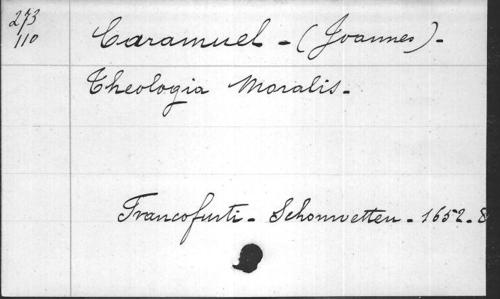 273
110
Caramuel - (Joannes) -
Theologia Moralis -
Francofurti - Schonwetten - 1652 - 8